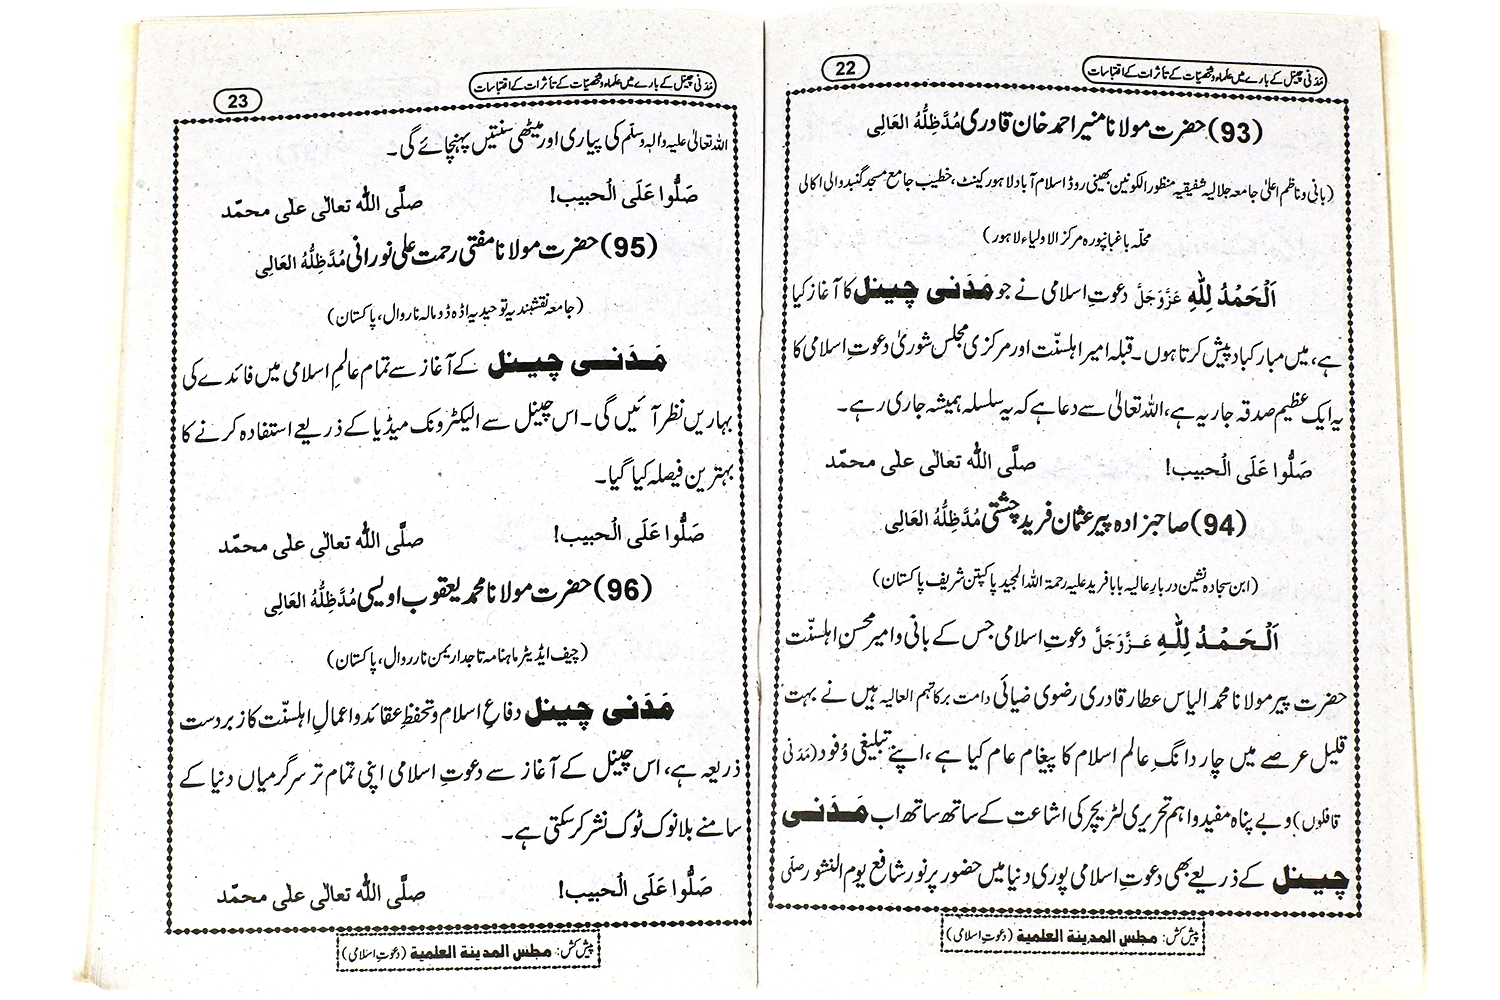 مَدَنی چینل کے بارے میں علماء و شخصیّات کے تأثرات کے اقتباسات
22
(93) حضرت مولانا منیر احمد خان قادری مُدَّظِلُّہُ العَالِی
(بانی و ناظم اعلیٰ جامعہ جلالیہ شفیقیہ منظور الکونین بھینی روڈ اسلام آباد لاہور کینٹ، خطیب جامع مسجد گنبد والی اکالی
محلّہ باغبانپورہ مرکز الاولیاء لاہور)
اَلْحَمْدُ لِلّٰہِ عَزَّوَجَلَّ دعوتِ اسلامی نے جو مَدَنی چینل کا آغاز کیا
ہے، میں مبارکباد پیش کرتا ہوں۔ قبلہ امیر اہلسنّت اور مرکزی مجلس شوریٰ دعوتِ اسلامی کا
یہ ایک عظیم صدقہ جاریہ ہے، اللہ تعالیٰ سے دعا ہے کہ یہ سلسلہ ہمیشہ جاری رہے۔
صَلُّوا عَلَی الْحبیب! صلَّی اللہُ تعالٰی علٰی محمّد
(94) صاحبزادہ پیر عثمان فرید چشتی مُدَّظِلُّہُ العَالِی
(ابن سجادہ نشین دربارِ عالیہ بابا فرید علیہ رحمۃ اللہ المجید پاکپتن شریف پاکستان)
اَلْحَمْدُ لِلّٰہِ عَزَّوَجَلَّ دعوتِ اسلامی جس کے بانی و امیر محسنِ اہلسنّت
حضرت پیر مولانا محمد الیاس عطار قادری رضوی ضیائی دامت برکاتہم العالیہ ہیں نے بہت
قلیل عرصے میں چار دانگِ عالم اسلام کا پیغام عام کیا ہے، اپنے تبلیغی وُفود (مَدَنی
قافلوں) و بے پناہ مفید و اہم تحریری لٹریچر کی اشاعت کے ساتھ ساتھ اب مَدَنی
چینل کے ذریعے بھی دعوتِ اسلامی پوری دنیا میں حضور پرنور شافع یوم النشور صلَّی
پیش کش: مجلس المدینۃ العلمیۃ (دعوتِ اسلامی)
مَدَنی چینل کے بارے میں علماء و شخصیّات کے تأثرات کے اقتباسات
23
اللہ تعالیٰ علیہ والہٖ وسلّم کی پیاری اور میٹھی سنتیں پہنچائے گی۔
صَلُّوا عَلَی الْحبیب! صلَّی اللہُ تعالٰی علٰی محمّد
(95) حضرت مولانا مفتی رحمت علی نورانی مُدَّظِلُّہُ العَالِی
(جامعہ نقشبندیہ توحیدیہ اڈہ ڈومالہ نارووال، پاکستان)
مَدَنی چینل کے آغاز سے تمام عالمِ اسلامی میں فائدے کی
بہاریں نظر آئیں گی۔ اس چینل سے الیکٹرونک میڈیا کے ذریعے استفادہ کرنے کا
بہترین فیصلہ کیا گیا۔
صَلُّوا عَلَی الْحبیب! صلَّی اللہُ تعالٰی علٰی محمّد
(96) حضرت مولانا محمد یعقوب اویسی مُدَّظِلُّہُ العَالِی
(چیف ایڈیٹر ماہنامہ تاجدارِ یمن نارروال، پاکستان)
مَدَنی چینل دفاعِ اسلام و تحفظِ عقائد و اعمالِ اہلسنّت کا زبردست
ذریعہ ہے، اس چینل کے آغاز سے دعوتِ اسلامی اپنی تمام تر سرگرمیاں دنیا کے
سامنے بلا نوک ٹوک نشر کر سکتی ہے۔
صَلُّوا عَلَی الْحبیب! صلَّی اللہُ تعالٰی علٰی محمّد
پیش کش: مجلس المدینۃ العلمیۃ (دعوتِ اسلامی)